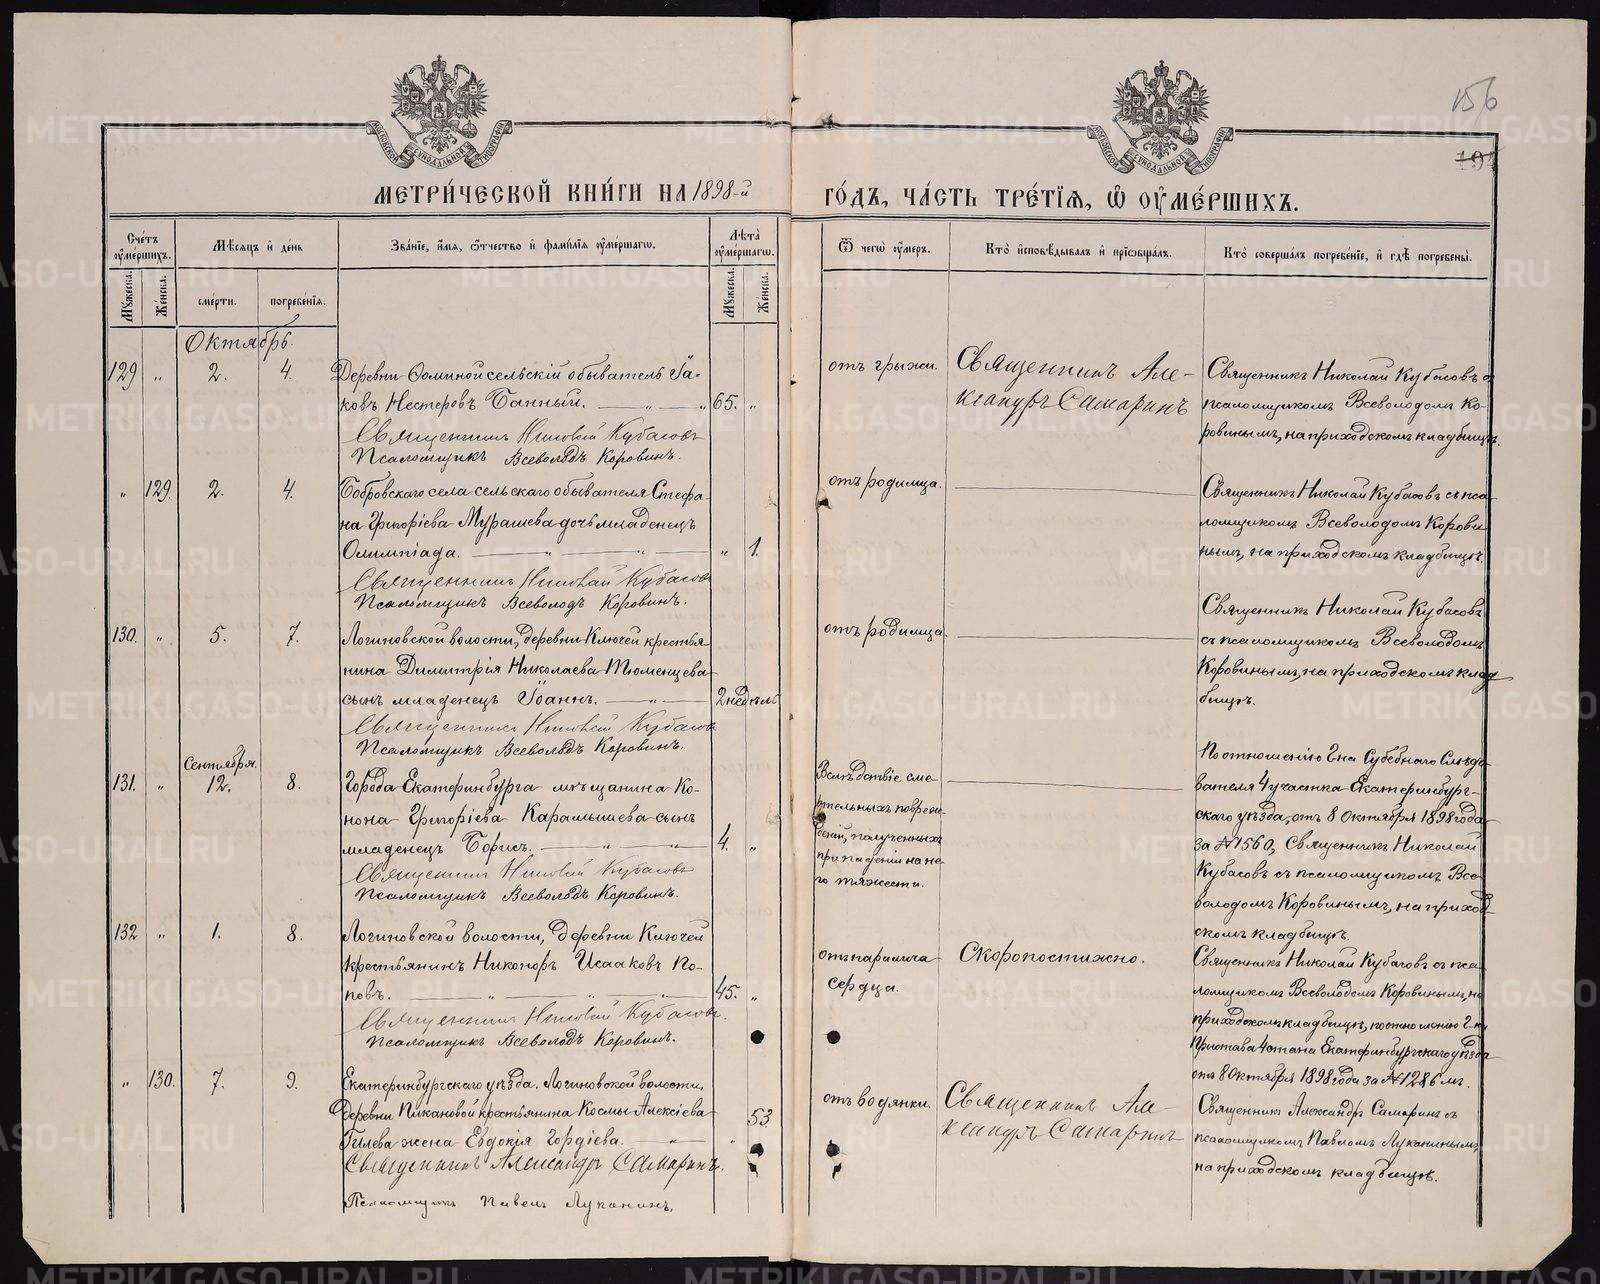 156
194
МОСКОВСКОЙ СѴНОДАЛЬНОЙ ТИПОГРАФІИ
МОСКОВСКОЙ СѴНОДАЛЬНОЙ ТИПОГРАФІИ
МЕТРИ́ЧЕСКОЙ КНИ́ГИ НА 1898-й
ГО́ДЪ, ЧА́СТЬ ТРЕ́ТІЯ, Ѽ ОУМЕ́РШИХЪ.
Счетъ оумершихъ.
Мужеска.
Женска.
Мѣсяцъ и день
смерти.
погребенія.
Званіе, имя, ѿчество и фамилія оумершагѡ.
Лѣта оумершагѡ.
Мужеска.
Женска.
Ѿ чегѡ оумеръ.
Кто исповѣдывалъ и пріѡбщалъ.
Кто совершалъ погребеніе, и гдѣ погребены.
Октябрь.
129 „ 2. 4.
Деревни Фоминой сельскій обыватель Іа-
ковъ Нестеровъ Банный. — „ — „ 65. „
Священникъ Николай Кубасовъ
Псаломщикъ Всеволодъ Коровинъ.
отъ грыжи.
Священникъ Але-
ксандръ Самаринъ
Священникъ Николай Кубасовъ съ
псаломщикомъ Всеволодомъ Ко-
ровинымъ, на приходскомъ кладбищѣ.
„ 129. 2. 4.
Бобровскаго села сельскаго обывателя Стефа-
на Григоріева Мурашева дочь младенецъ
Олимпіада. — „ — „ — „ 1.
Священникъ Николай Кубасовъ
Псаломщикъ Всеволодъ Коровинъ.
отъ родимца.
Священникъ Николай Кубасовъ съ пса-
ломщикомъ Всеволодомъ Корови-
нымъ, на приходскомъ кладбищѣ.
130. „ 5. 7.
Логиновской волости, деревни Ключей крестья-
нина Димитрія Николаева Тюменцева
сынъ младенецъ Іоаннъ. — „ — 2 недѣли
Священникъ Николай Кубасовъ
Псаломщикъ Всеволодъ Коровинъ.
отъ родимца.
Священникъ Николай Кубасовъ
съ псаломщикомъ Всеволодомъ
Коровинымъ, на приходскомъ клад-
бищѣ.
Сентября.
131. „ 12. 8.
Города Екатеринбурга мѣщанина Ко-
нона Григоріева Карамышева сынъ
младенецъ Борисъ. — „ — „ — 4. „
Священникъ Николай Кубасовъ
Псаломщикъ Всеволодъ Коровинъ.
Вслѣдствіе сме-
ртельныхъ повреж-
деній, полученныхъ
при паденіи на не-
го тяжести.
По отношенію Г-на Судебнаго Слѣдо-
вателя 4 участка Екатеринбург-
скаго уѣзда, отъ 8 Октября 1898 года
за № 1560, Священникъ Николай
Кубасовъ съ псаломщикомъ Все-
володомъ Коровинымъ, на приход-
скомъ кладбищѣ.
132 „ 1. 8.
Логиновской волости, деревни Ключей
крестьянинъ Никоноръ Исааковъ По-
повъ. — „ — „ — „ 45. „
Священникъ Николай Кубасовъ.
Псаломщикъ Всеволодъ Коровинъ.
отъ паралича
сердца.
Скоропостижно.
Священникъ Николай Кубасовъ съ пса-
ломщикомъ Всеволодомъ Коровинымъ, на
приходскомъ кладбищѣ, по отношенію Г-на
Пристава 4 стана Екатеринбургскаго уѣзда
отъ 8 Октября 1898 года за № 1286 м.
„ 130. 7. 9.
Екатеринбургскаго уѣзда, Логиновской волости,
деревни Пикановой крестьянина Космы Алексіева
Гилева жена Евдокія Гордіева. — „ — „ 53.
Священникъ Александръ Самаринъ.
Псаломщикъ Павелъ Луканинъ.
отъ водянки.
Священникъ Але-
ксандръ Самаринъ
Священникъ Александръ Самаринъ съ
псаломщикомъ Павломъ Луканинымъ,
на приходскомъ кладбищѣ.
METRIKI.GASO-URAL.RU